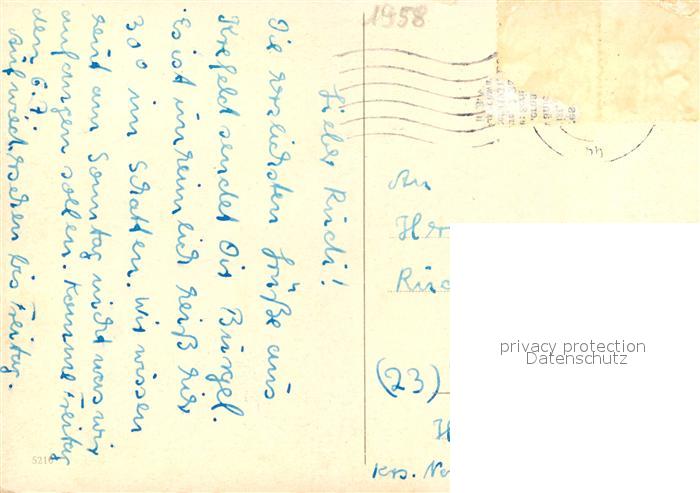 1958
Lieber Rudi!
Die herzlichsten Grüße aus
Krefeld sendet Dir Bürgel.
Es ist unheimlich heiß hier
30° im Schatten. Wir wissen
heut am Sonntag nicht was wir
anfangen sollen. Komme Freitag
den 6.7.
Aufwiedersehen bis Freitag.
An
Her
(23)
H
Krs. Ne
privacy protection
Datenschutz